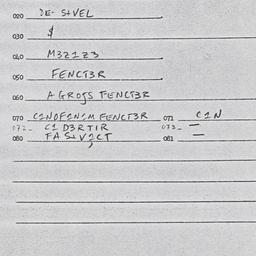 020 DE- SIVEL
030 $
040 M3Z1Z3
050 FENCT3R
060 A GROJS FENCT3R
070 C1NOF1N1M FENCT3R 071 C1N
072 - C1 D3RTIR 073 - —
080 FA SIV1CT 081 —